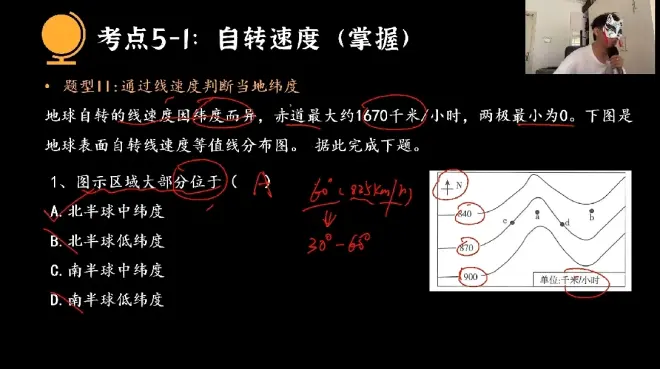 考点5-1：自转速度（掌握）
• 题型11:通过线速度判断当地纬度
地球自转的线速度因纬度而异，赤道最大约1670千米/小时，两极最小为0。下图是
地球表面自转线速度等值线分布图。 据此完成下题。
1、图示区域大部分位于（ A ）
A.北半球中纬度
B.北半球低纬度
C.南半球中纬度
D.南半球低纬度
60° 825km/h
30°-60°
N
840
c
a
d
b
870
900
单位:千米/小时